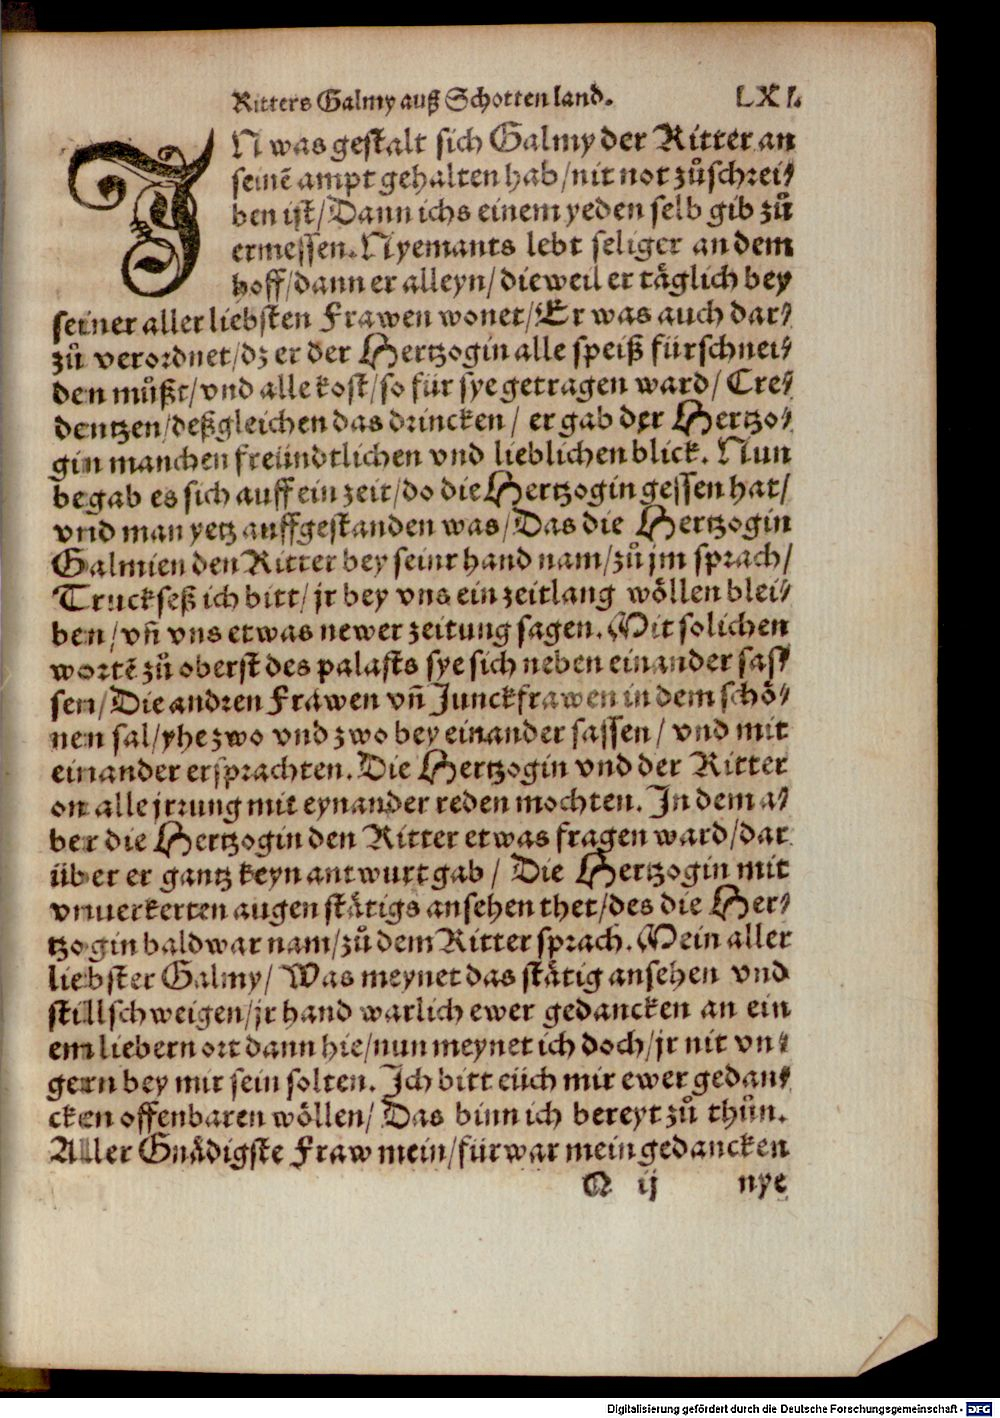 Ritters Galmy auß Schottenland. LXI.
IN was gestalt sich Galmy der Ritter an
seinē ampt gehalten hab/nit not zůschrei⸗
ben ist/Dann ichs einem yeden selb gib zů
ermessen. Nyemants lebt seliger an dem
hoff/dann er alleyn/dieweil er täglich bey
seiner aller liebsten Frawen wonet/Er was auch dar⸗
zů verordnet/dz er der Hertzogin alle speiß fürschnei⸗
den můßt/vnd alle kost/so für sye getragen ward/Cre⸗
dentzen/deßgleichen das drincken/ er gab der Hertzo⸗
gin manchen freündtlichen vnd lieblichen blick. Nun
begab es sich auff ein zeit/do die Hertzogin gessen hat/
vnd man yetz auffgestanden was/Das die Hertzogin
Galmien den Ritter bey seinr hand nam/zů jm sprach/
Truckseß ich bitt/jr bey vns ein zeitlang wöllen blei⸗
ben/vñ vns etwas newer zeitung sagen. Mit solichen
wortē zů oberst des palasts sye sich neben einander sas⸗
sen/Die andren Frawen vñ Junckfrawen in dem schö⸗
nen sal/yhe zwo vnd zwo bey einander sassen/ vnd mit
einander ersprachten. Die Hertzogin vnd der Ritter
on alle jrrung mit eynander reden mochten. In dem a⸗
ber die Hertzogin den Ritter etwas fragen ward/dar
über er gantz keyn antwurt gab/ Die Hertzogin mit
vnuerkerten augen stätigs ansehen thet/des die Her⸗
tzogin bald war nam/zů dem Ritter sprach. Mein aller
liebster Galmy/ Was meynet das stätig ansehen vnd
stillschweigen/jr hand warlich ewer gedancken an ein
em liebern ort dann hie/nun meynet ich doch/jr nit vn⸗
gern bey mir sein solten. Ich bitt eüch mir ewer gedan⸗
cken offenbaren wöllen/ Das binn ich bereyt zů thůn.
Aller Gnädigste Fraw mein/fürwar mein gedancken
Q ij nye
Digitalisierung gefördert durch die Deutsche Forschungsgemeinschaft - DFG